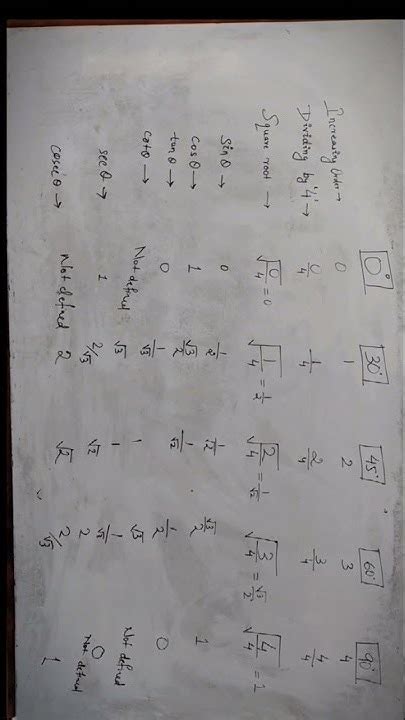 0° 30° 45° 60° 90°
Increasing Order → 0 1 2 3 4
Dividing by '4' → 0/4 1/4 2/4 3/4 4/4
Square root → √(0/4) = 0 √(1/4) = 1/2 √(2/4) = 1/√2 √(3/4) = √3/2 √(4/4) = 1
Sin θ → 0 1/2 1/√2 √3/2 1
cos θ → 1 √3/2 1/√2 1/2 0
tan θ → 0 1/√3 1 √3 Not defined
cot θ → Not defined √3 1 1/√3 0
sec θ → 1 2/√3 √2 2 Not defined
cosec θ → Not defined 2 √2 2/√3 1